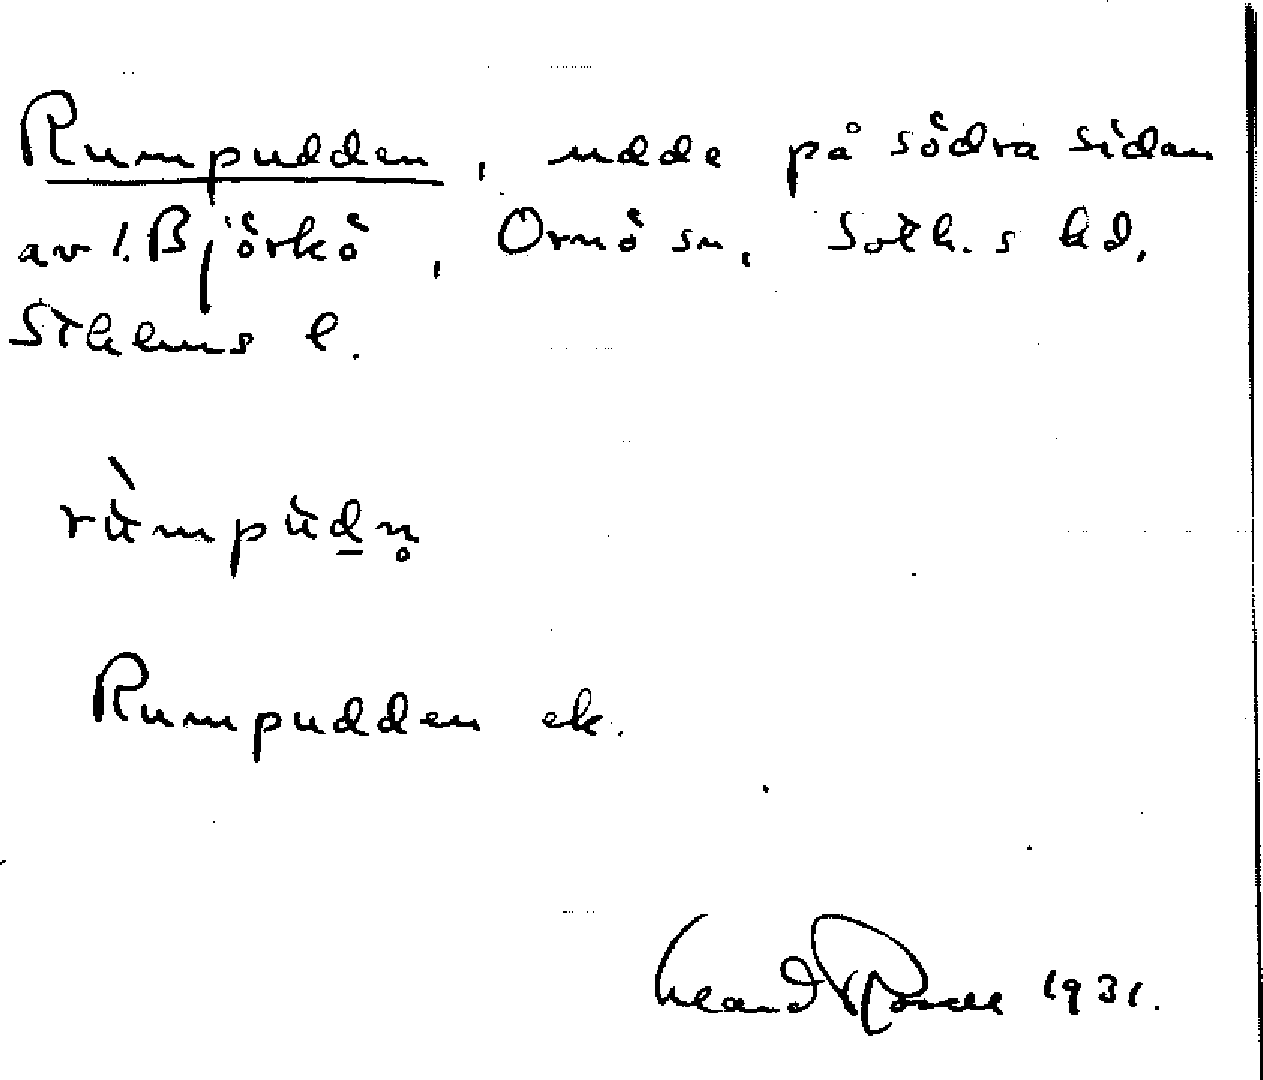 Rumpudden, udde på södra sidan
av l. Björkö, Ornö sn, Soth.s hd,
Sthlms l.
rùmpùdn̥
Rumpudden ek.
1931.